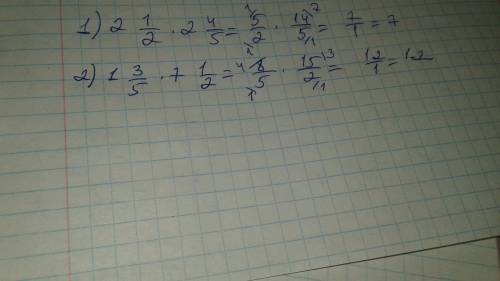 1) 2 1/2 · 2 4/5 = 5/2 · 14/5 = 7/1 = 7
2) 1 3/5 · 7 1/2 = 8/5 · 15/2 = 12/1 = 12